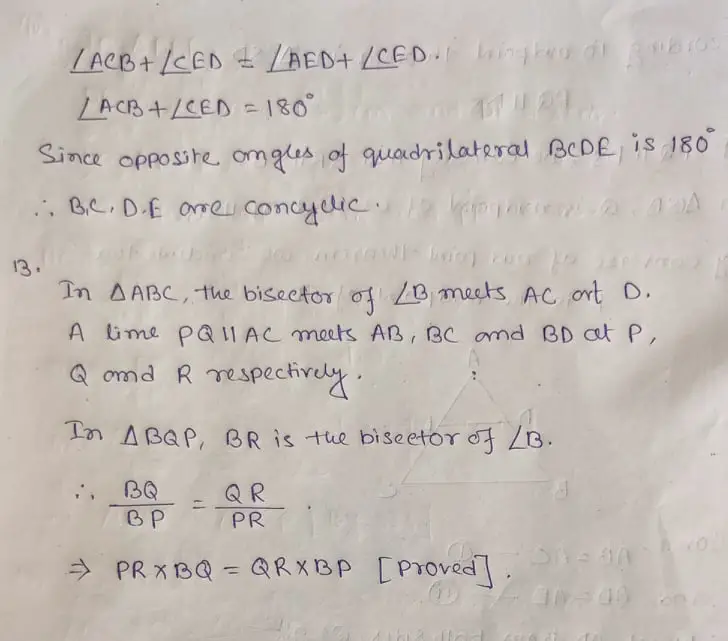 ∠ACB + ∠CED = ∠AED + ∠CED.
∠ACB + ∠CED = 180°
Since opposite angles of quadrilateral BCDE is 180°
∴ B,C,D,E are concyclic.
13.
In △ABC, the bisector of ∠B meets AC at D.
A line PQ || AC meets AB, BC and BD at P,
Q and R respectively.
In △BQP, BR is the bisector of ∠B.
∴ BQ/BP = QR/PR.
⇒ PR × BQ = QR × BP [Proved].